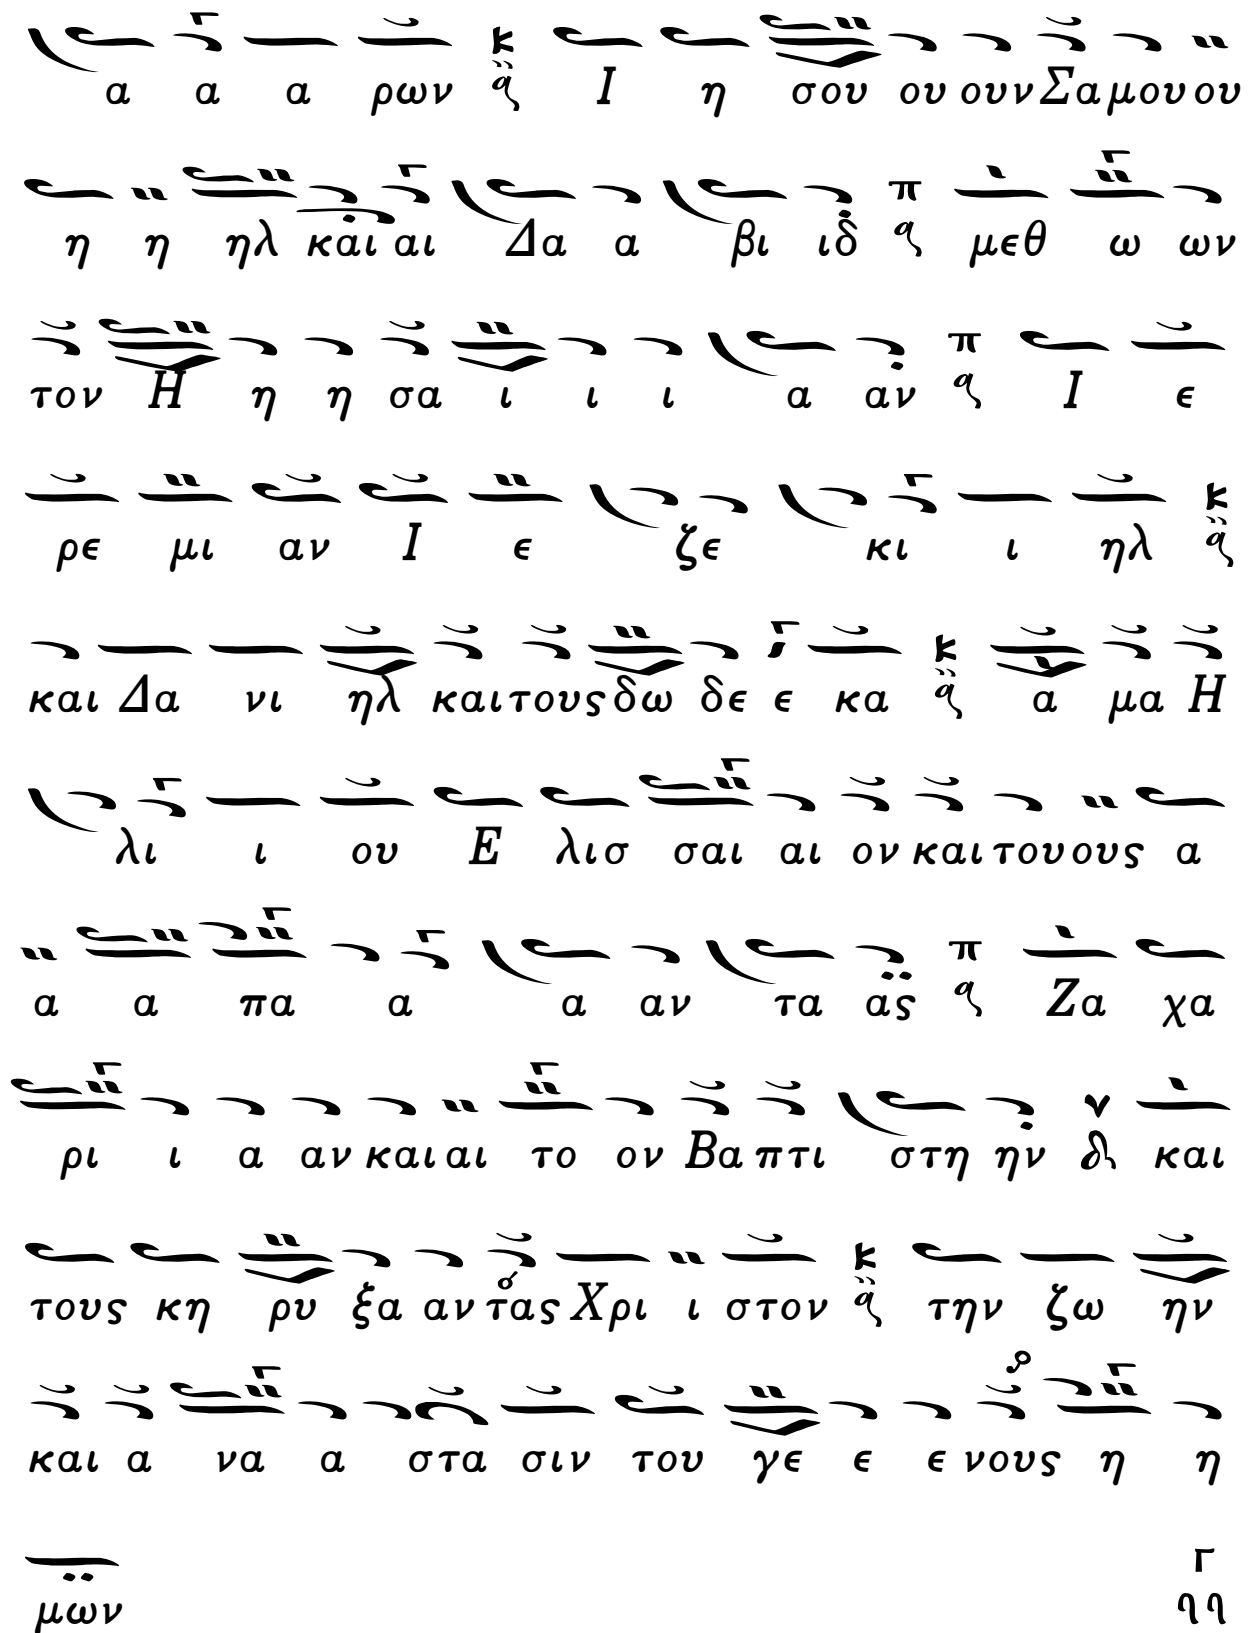 α α α ρων κ Ι η σου ου ουν Σα μου ου
η η ηλ και αι Δα α βι ιδ π μεθ ω ων
τον Η η η σα ι ι ι α αν π Ι ε
ρε μι αν Ι ε ζε κι ι ηλ κ
και Δα νι ηλ και τους δω δε ε κα κ α μα Η
λι ι ου Ε λισ σαι αι ον και του ους α
α α πα α α αν τα ας π Ζα χα
ρι ι α αν και αι το ον Βα πτι στη ην και
τους κη ρυ ξα αν τας Χρι ι στον κ την ζω ην
και α να α στα σιν του γε ε ε νους η η
μων Γ